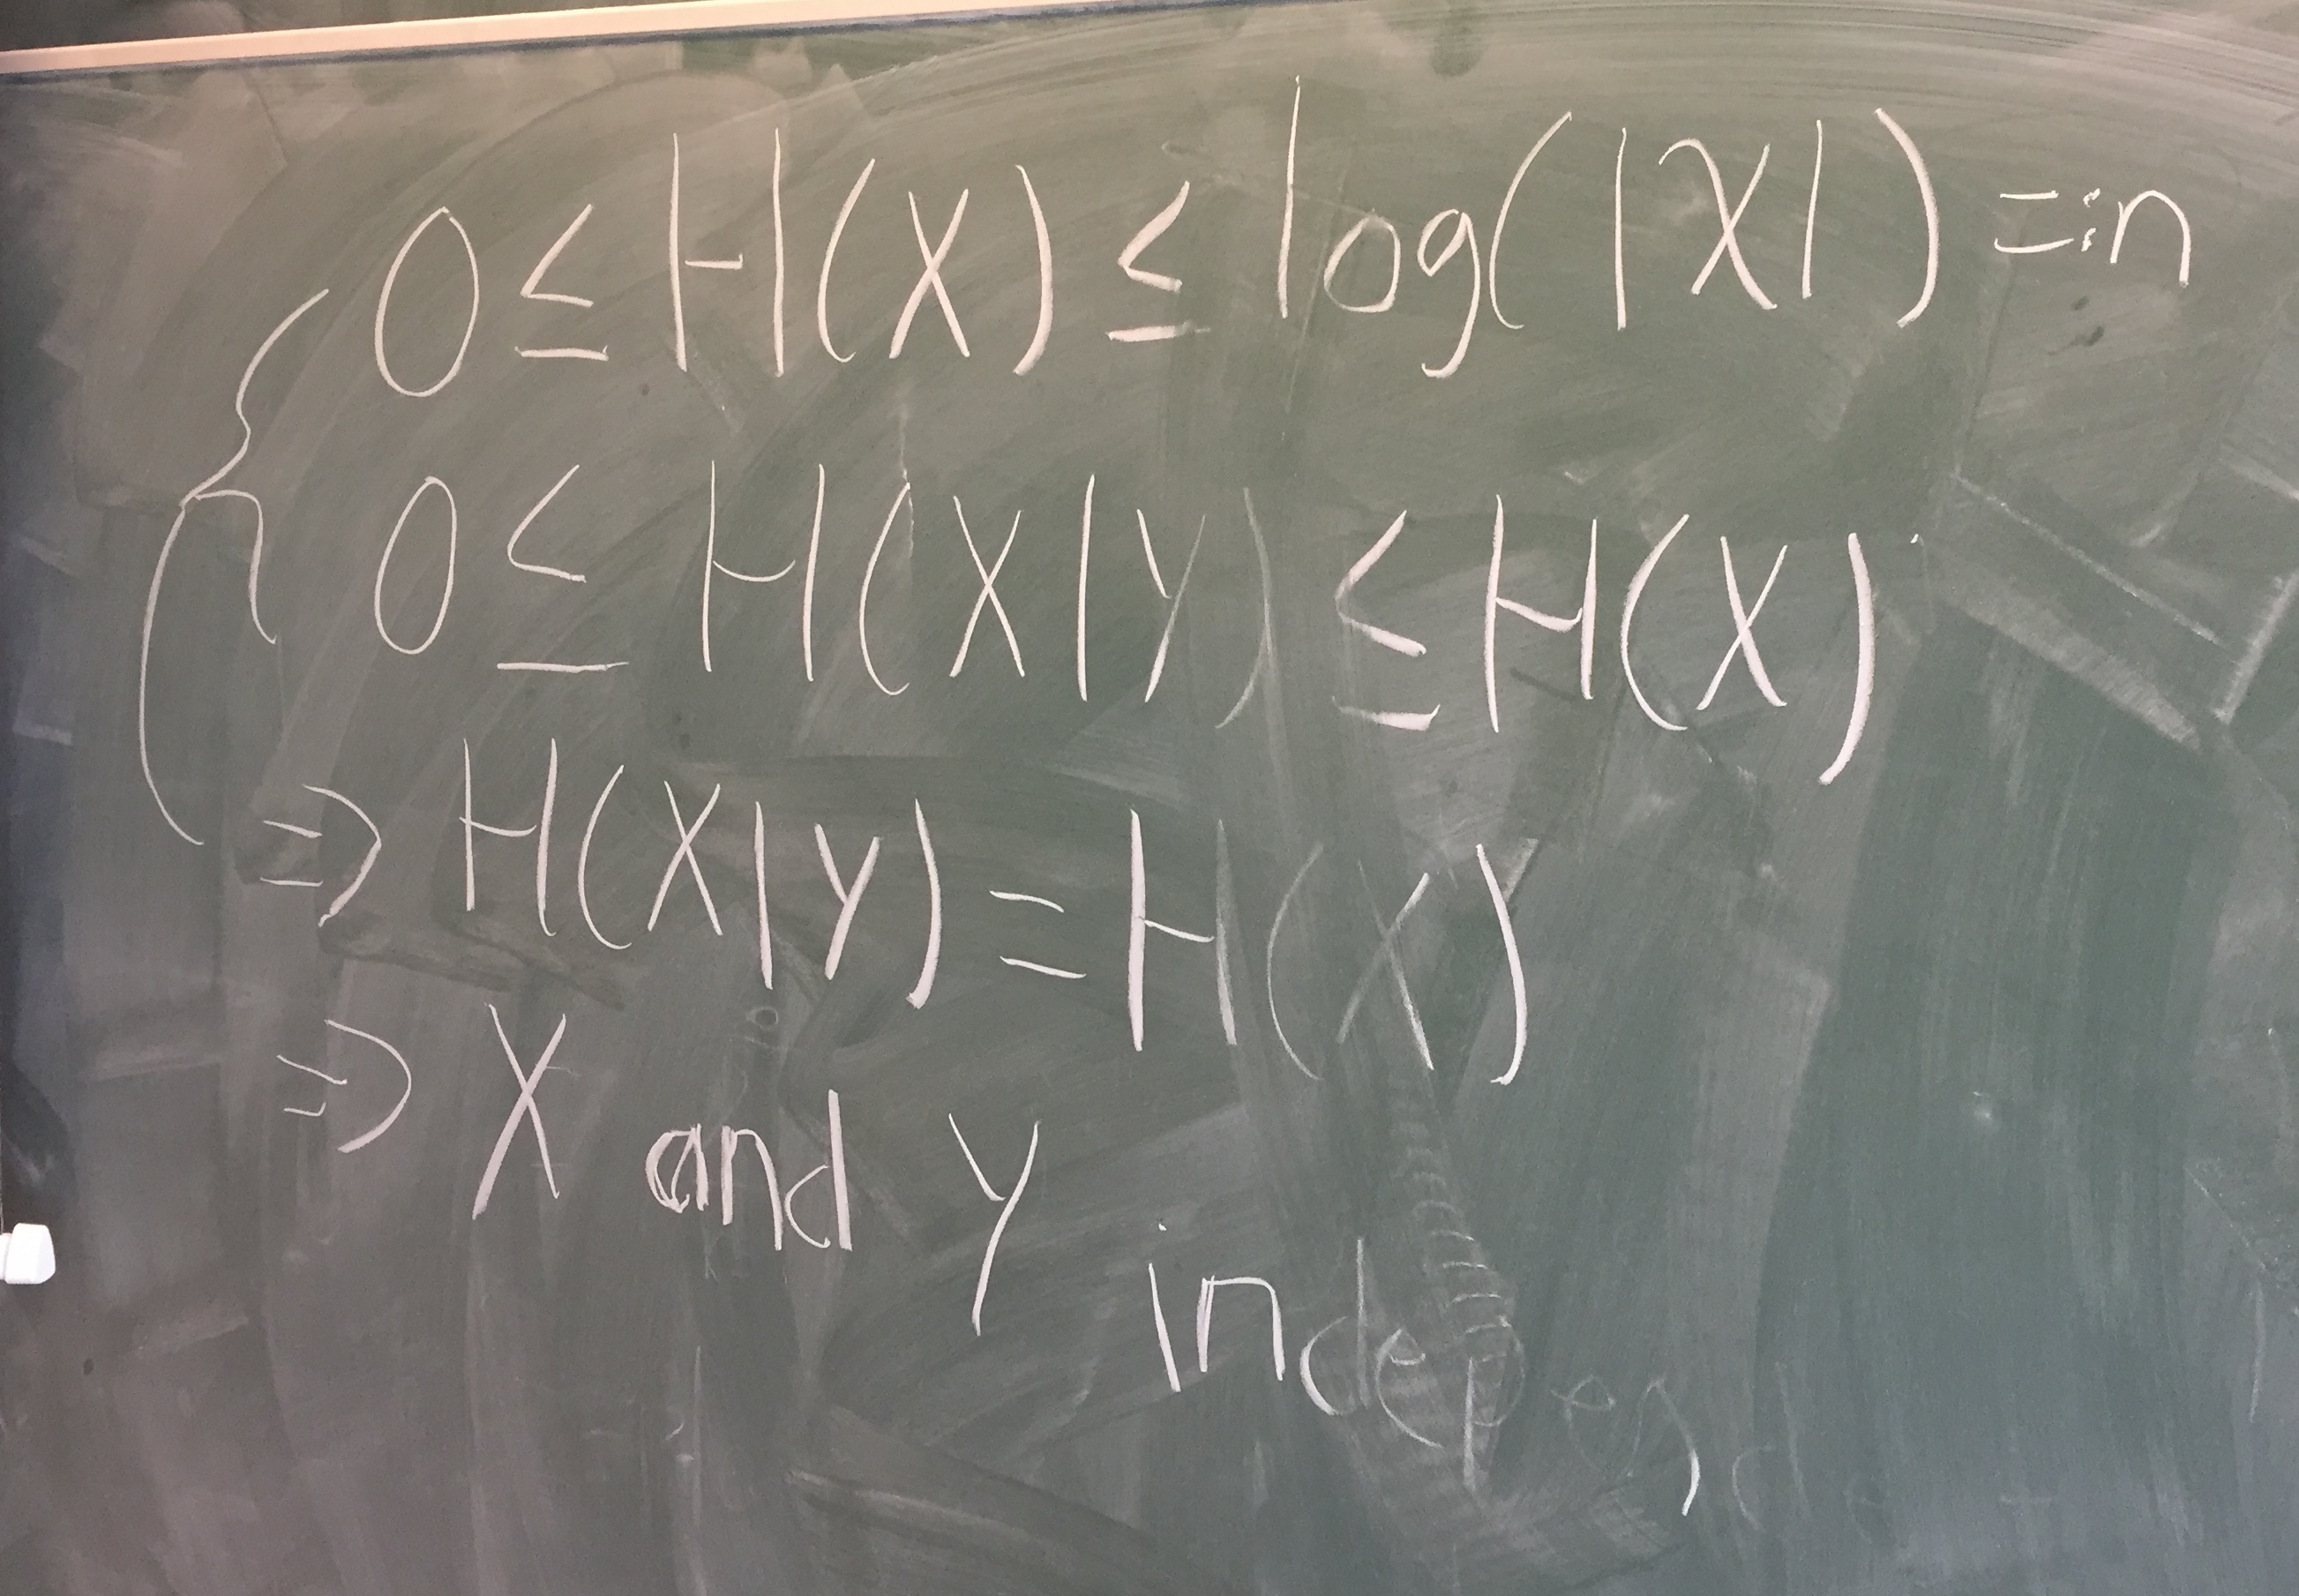 0 ≤ H(X) ≤ log(|X|) =: n
0 ≤ H(X|Y) ≤ H(X)
⇒ H(X|Y) = H(X)
⇒ X and Y independ